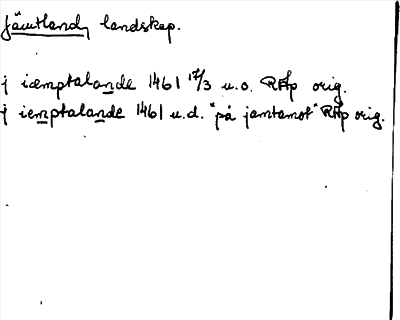 Jämtland, landskap.
j iæmptalande 1461 17/3 u.o. RAp orig.
j iemptalande 1461 u.d. "på jamtamot" RAp orig.